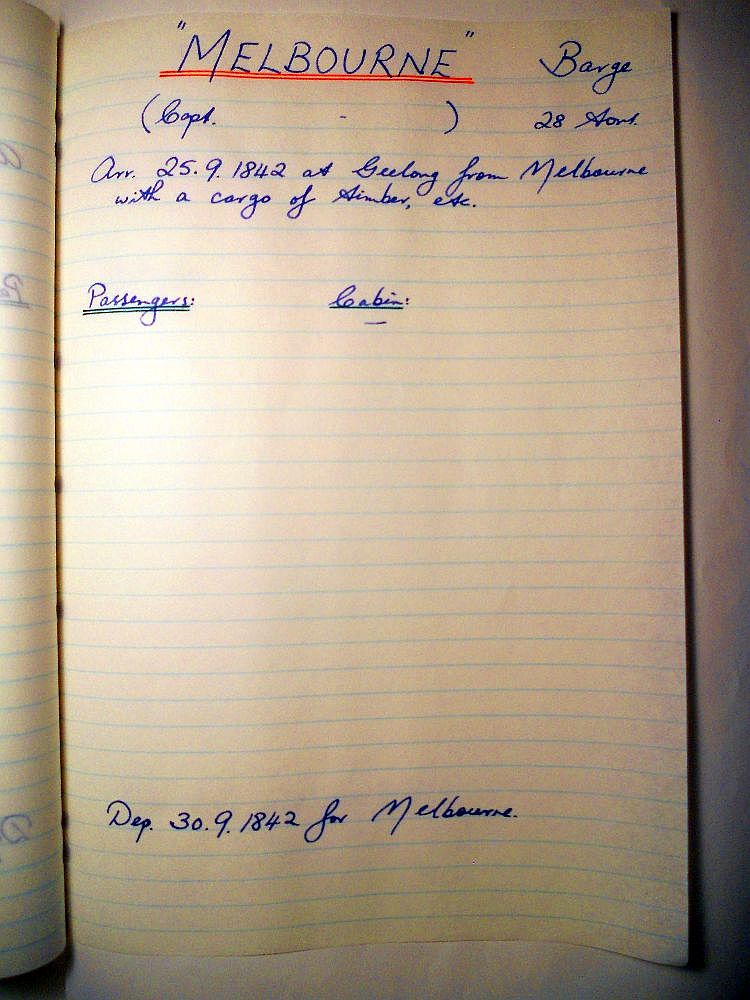 "MELBOURNE" Barge
(Capt. - ) 28 tons.
Arr. 25.9.1842 at Geelong from Melbourne
with a cargo of timber, etc.
Passengers: Cabin:
—
Dep. 30.9.1842 for Melbourne.